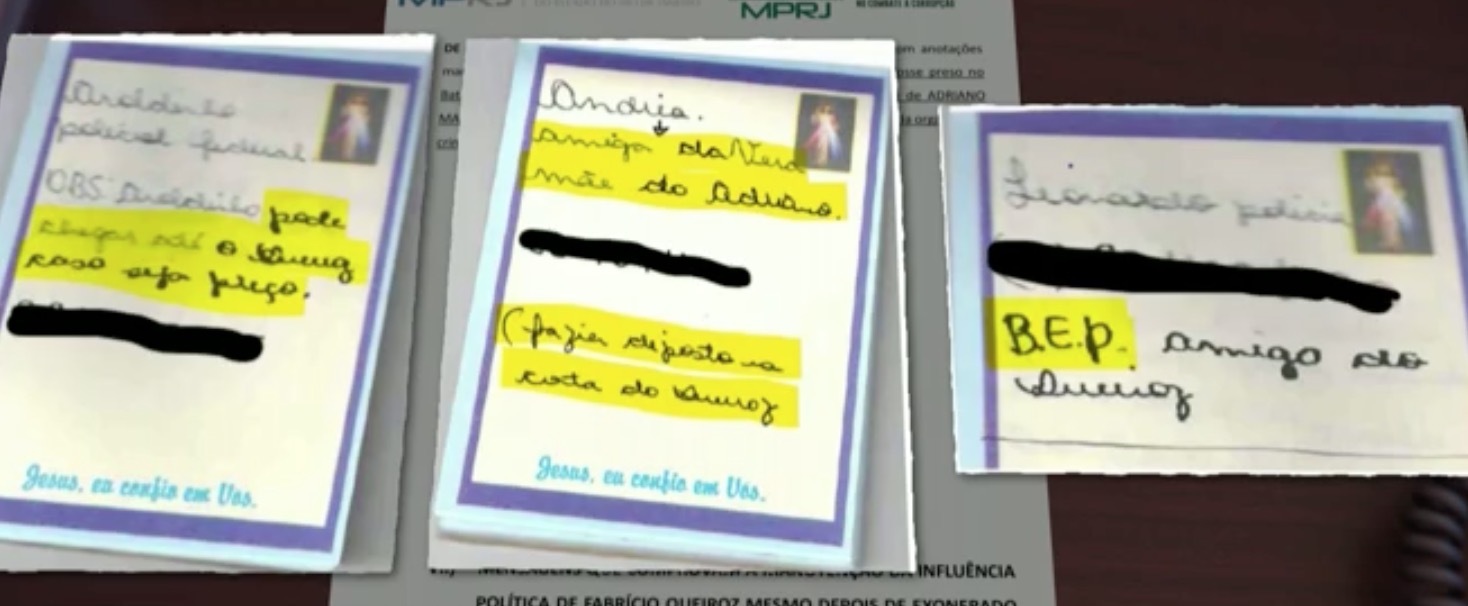 MPRJ
MPRJ
NO COMBATE À CORRUPÇÃO
DE
om anotações
mai
osse preso no
Bat
de ADRIANO
MA
Aroldinho
policial federal
OBS Aroldinho pode
chegar até o Queroz
caso seja preço.
Jesus, eu confio em Vós.
Andria.
amiga da Vera
mãe do Adriano.
(fazia deposto na
conta do Queroz
Jesus, eu confio em Vós.
Leonardo policia
B.E.P. amigo do
Queroz
MENSAGENS QUE COMPROVAM A MANUTENÇÃO DA INFLUÊNCIA
POLÍTICA DE FABRÍCIO QUEIROZ MESMO DEPOIS DE EXONERADO